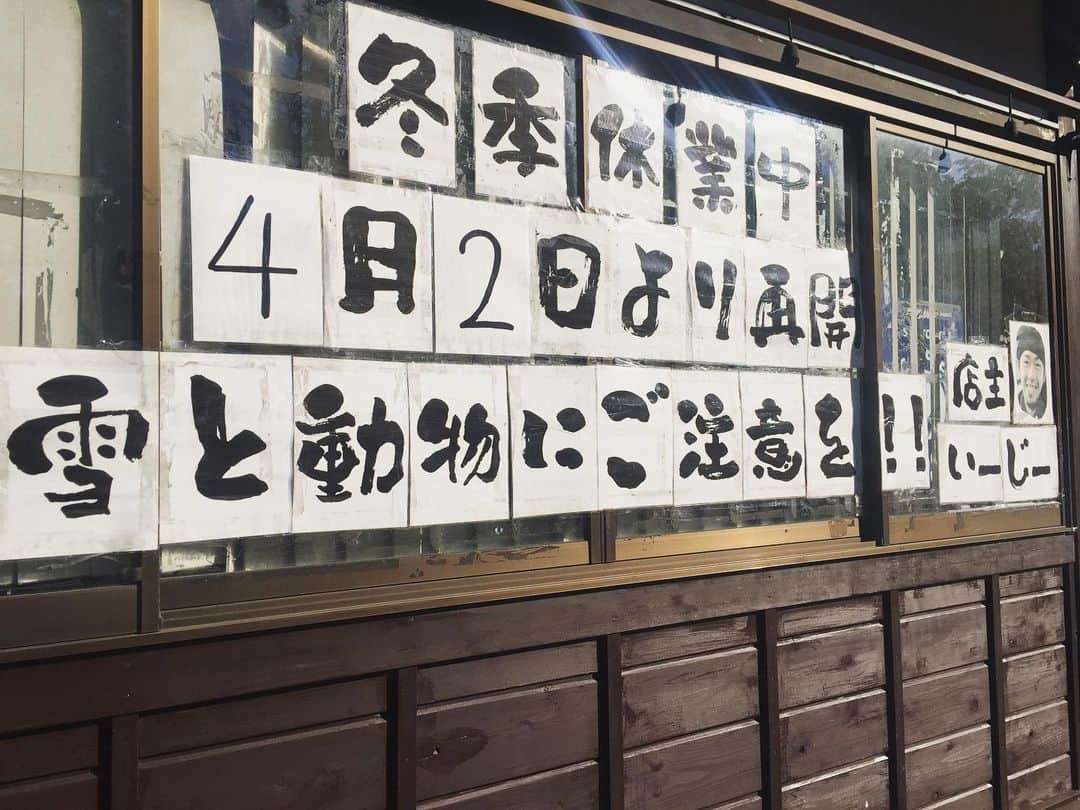 冬季休業中
4月2日より再開
雪と動物にご注意を!!
店主
いーじー